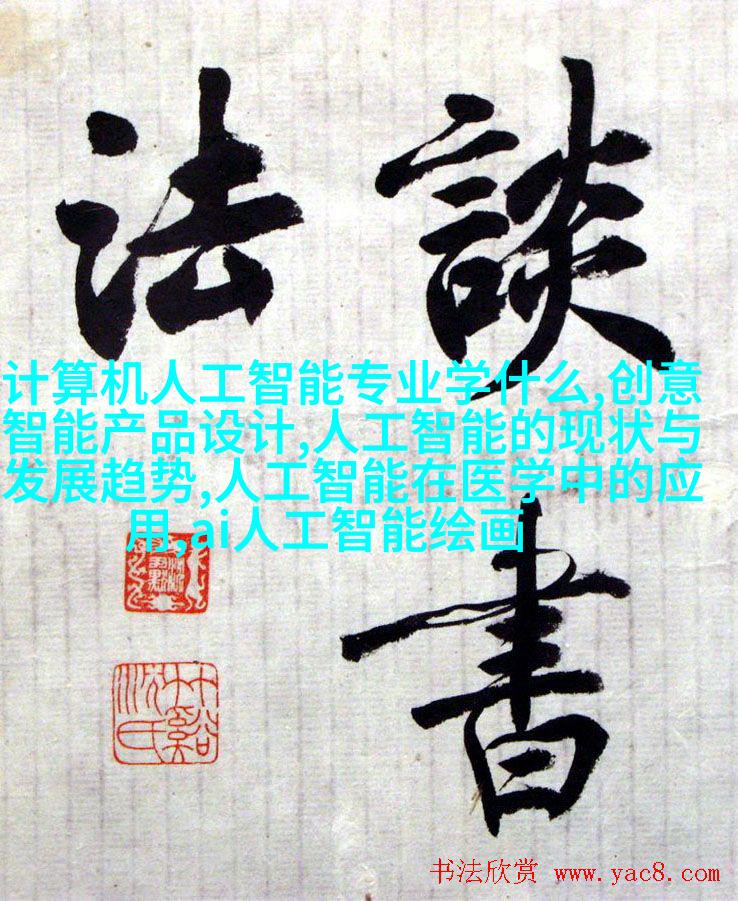 談書
法
计算机人工智能专业学什么,创意
智能产品设计,人工智能的现状与
发展趋势,人工智能在医学中的应
用,ai人工智能绘画
书法欣赏 www.yac8.com